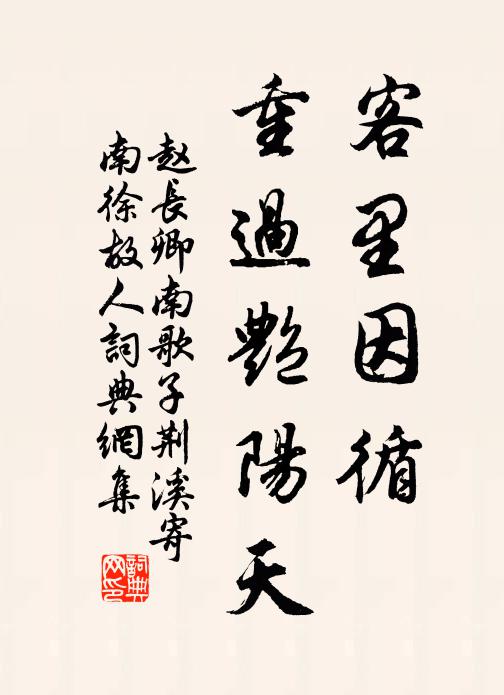 客里因循
重過艷陽天
赵長卿南歌子荆溪寄
南徐故人詞典網集
詞典网印